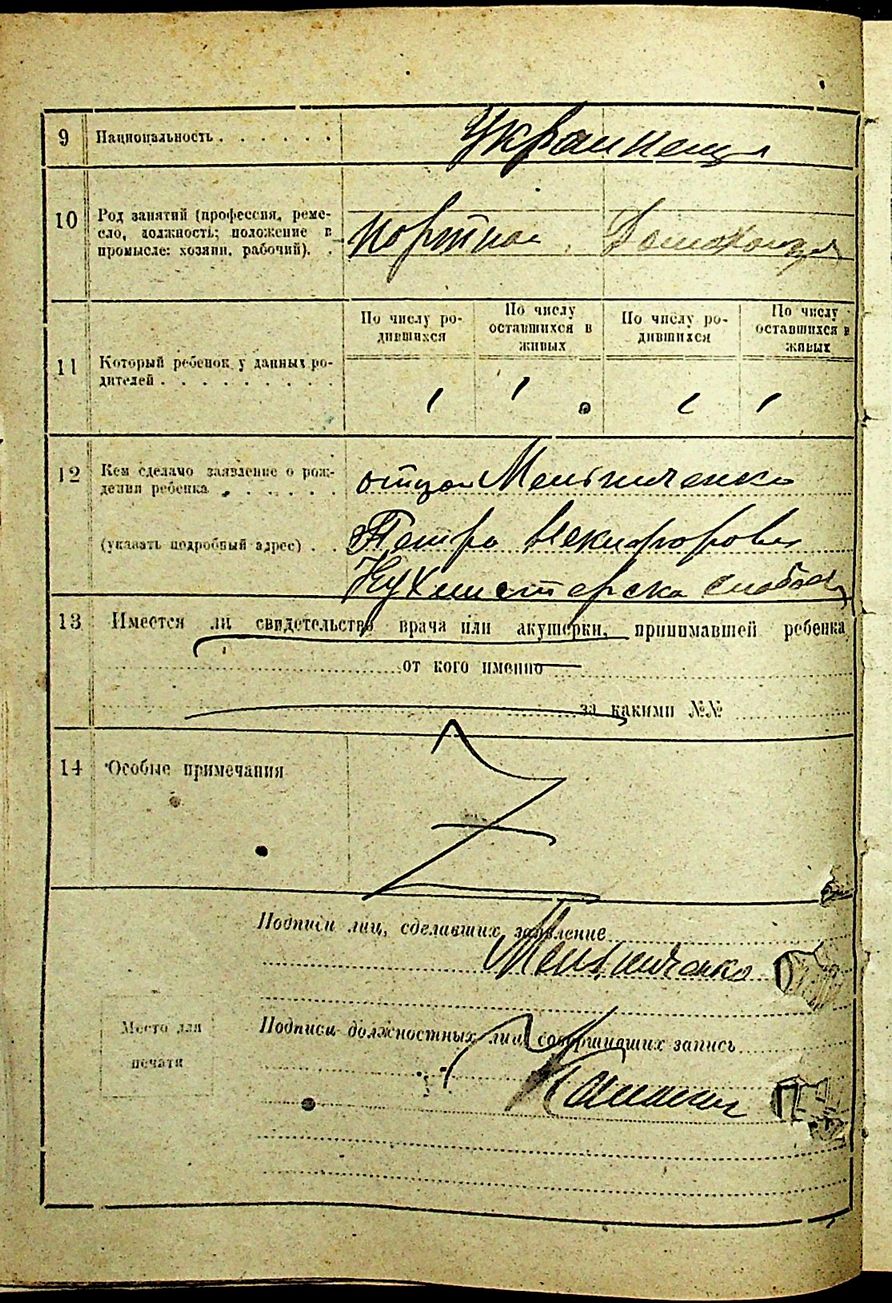 9 Национальность . . . . . . Украинец
10 Род занятий (профессия, реме-
сло, должность; положение в
промысле: хозяин, рабочий). . Портной. Домохоз
По числу ро-
дившихся
По числу
оставшихся в
живых
По числу ро-
дившихся
По числу
оставшихся в
живых
11 Который ребенок у данных ро-
дителей . . . . . . . . .
1 1 1 1
12 Кем сделано заявление о рож-
дении ребенка . . . . . . отцом Мельниченко
(указать подробный адрес) . . Петро Никифорович
Кухмистерска слобод
13 Имеется ли свидетельство врача или акушерки, принимавшей ребенка
от кого именно
за какими №№
14 Особые примечания
Z
Подписи лиц, сделавших заявление
Мельниченко
Место для
печати
Подписи должностных лиц, совершивших запись